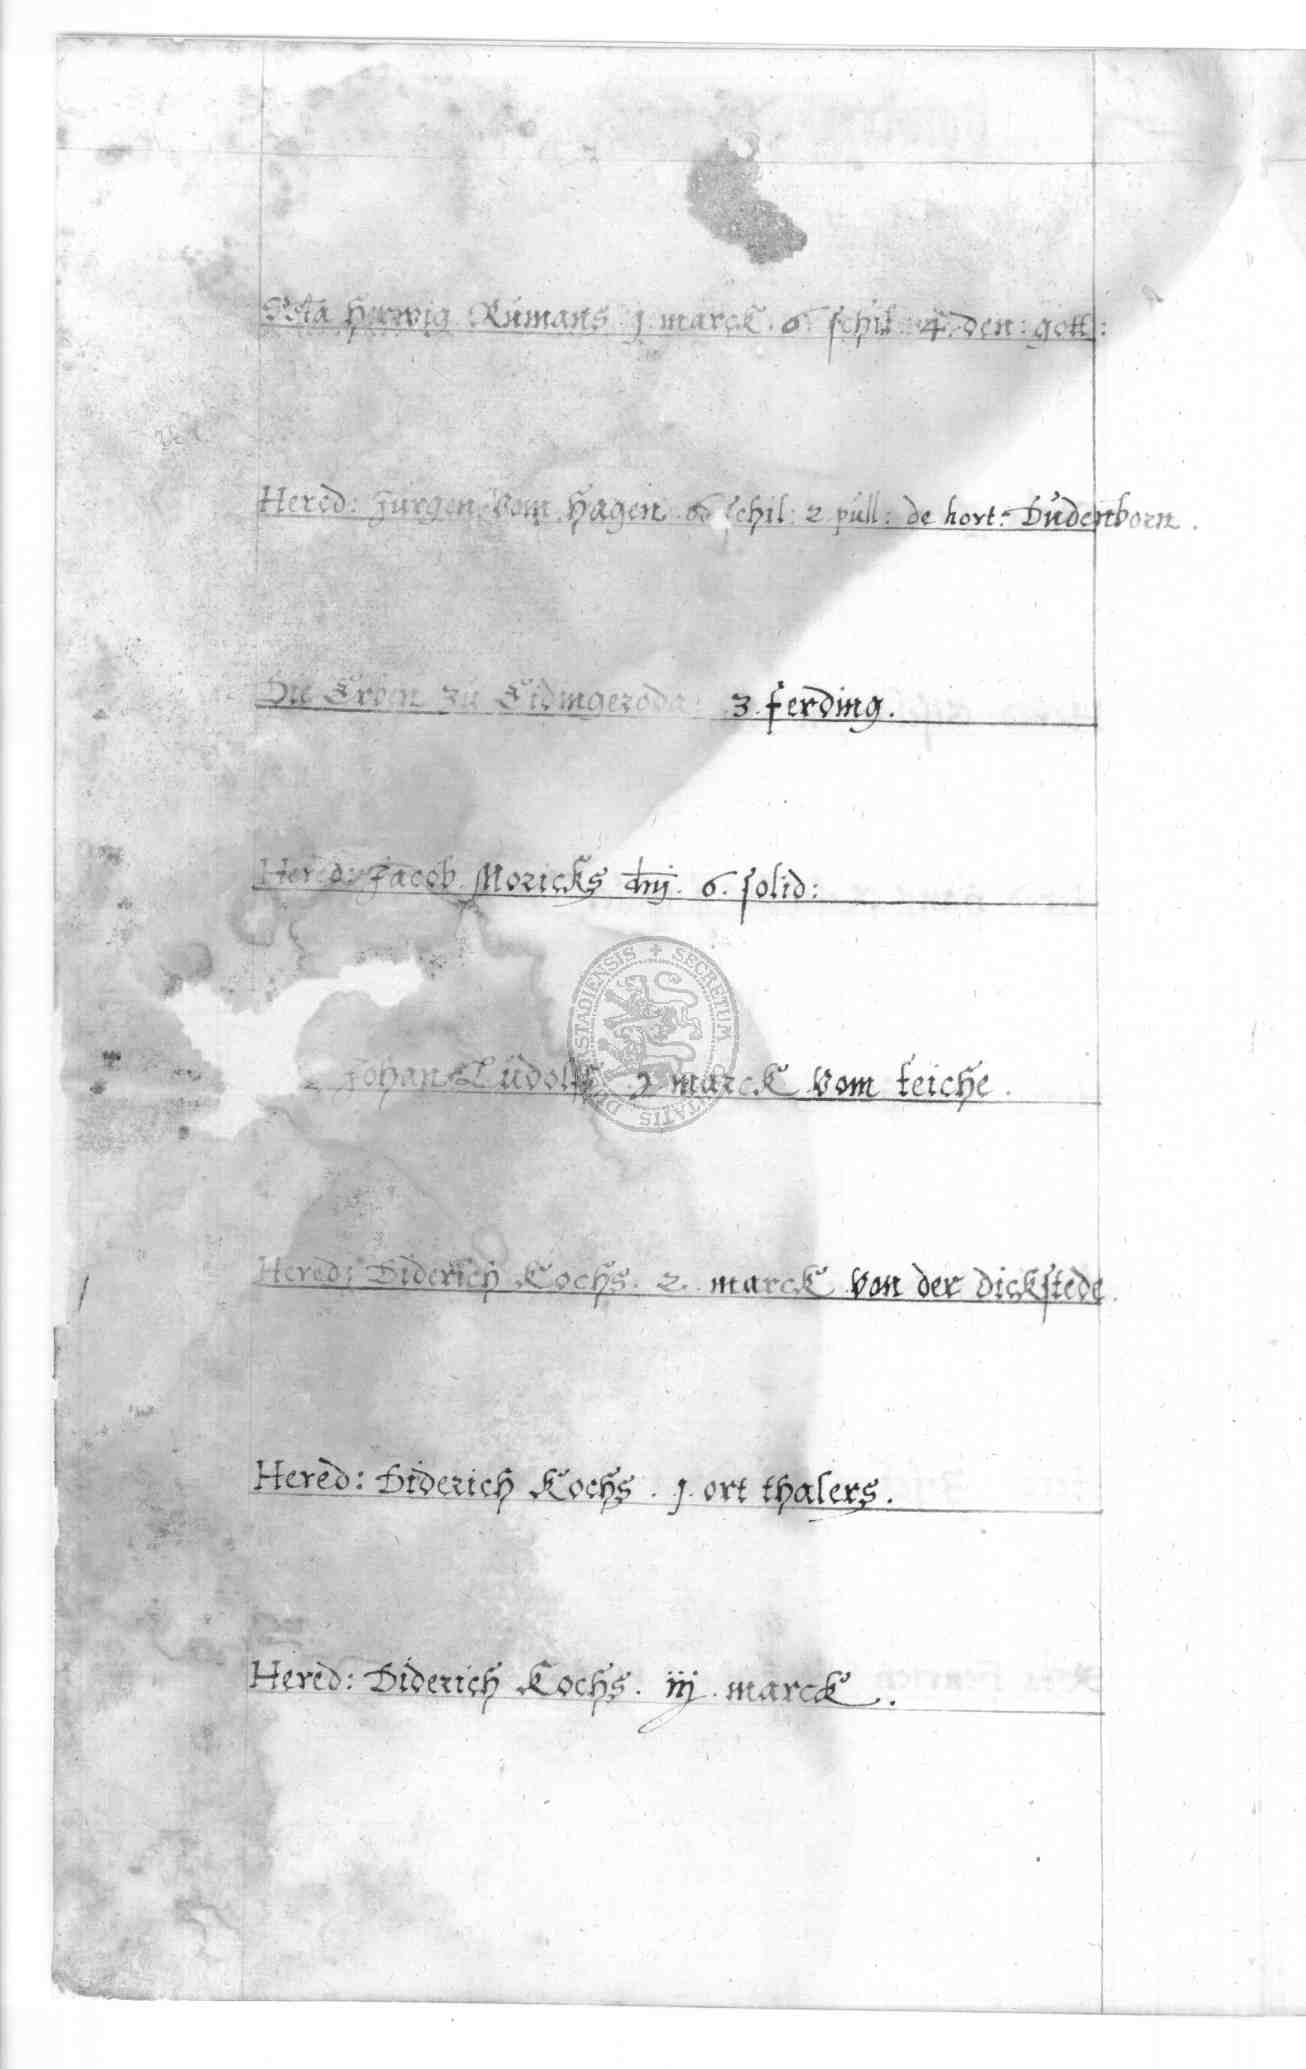 Rta Herwig Rúmans . j . marck . 6 schil : 4 . den : gott :
Hered : Jurgen vom Hagen 6 schil : 2 púll : de hort : Dúdenborn .
Die Erben zú Eidingeroda 3 . ferding .
Hered : Jacob Moricks 6 . solid :
Johan Lúdolffs marck vom teiche .
Hered : Diderich Kochs . 2 . marck von der dickstede .
Hered : Diderich Kochs . j . ort thalers .
Hered : Diderich Kochs . iij . marck .
SECRETUM